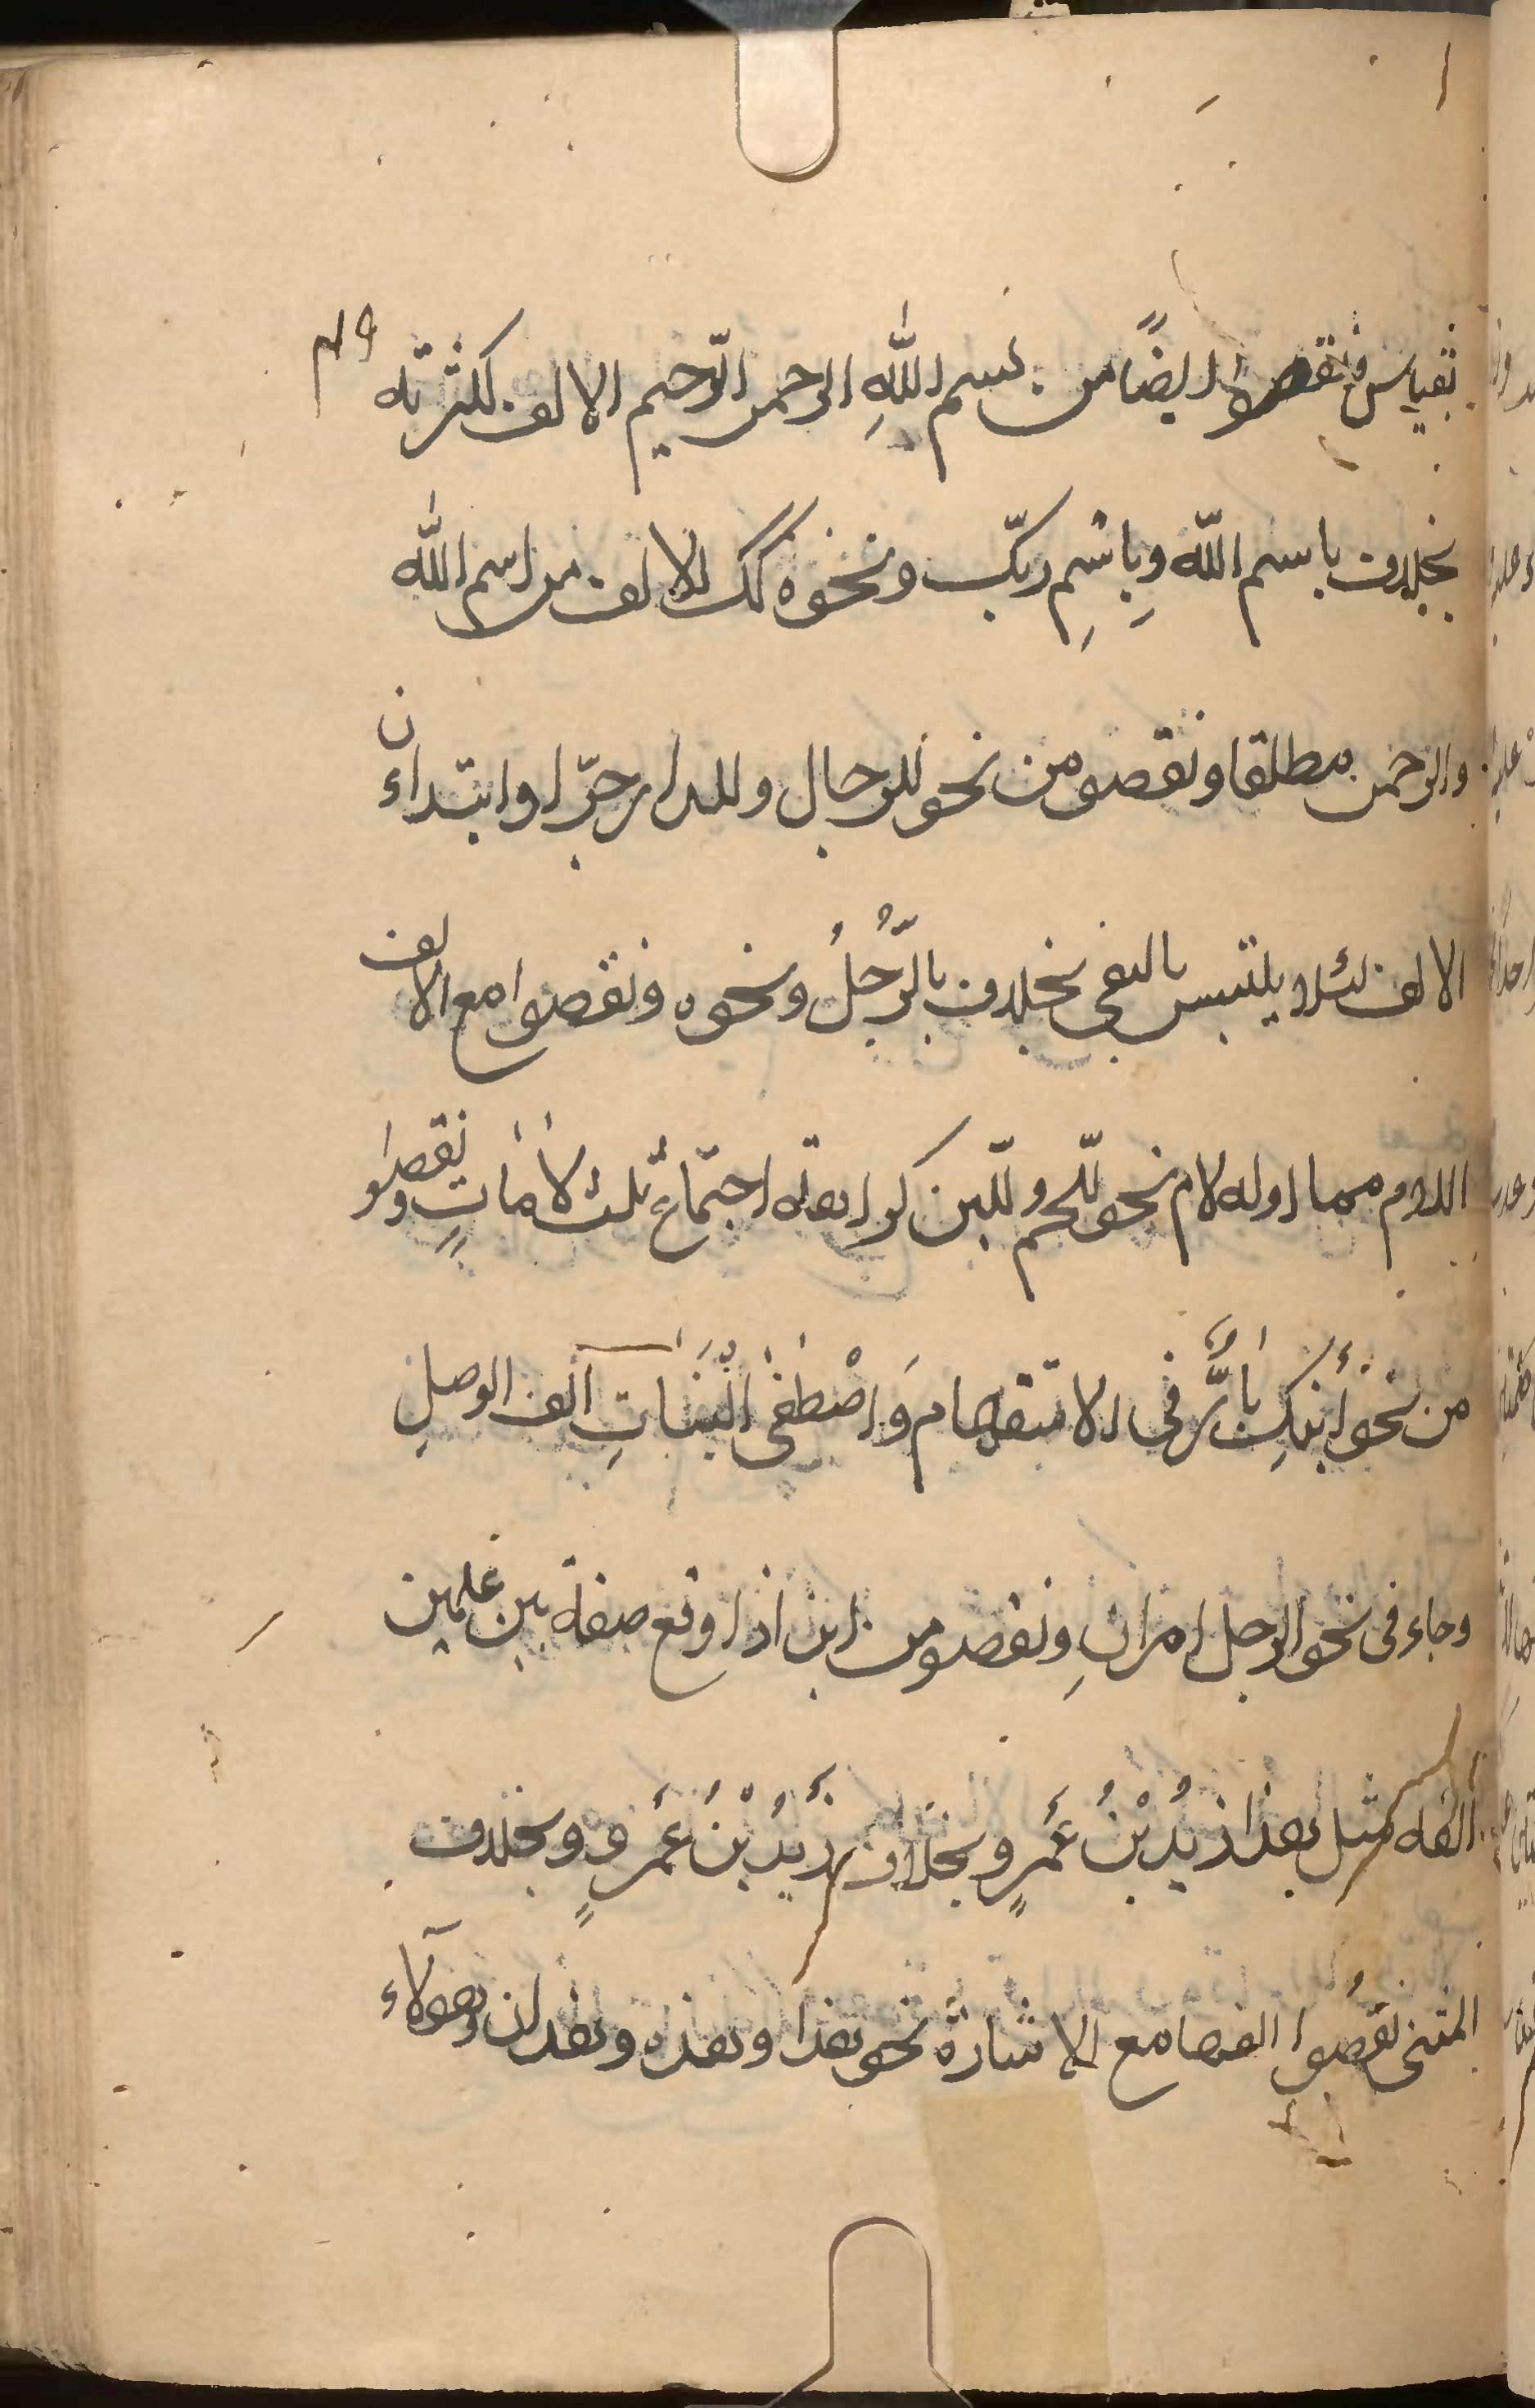 بقياس ونقصوا ايضًا من بسم اللهِ الرحمن الرّحيم الالف لكثرته
بخلاف باسم اللّه وبِاسْمِ ربّك ونحوه كك الالف من اسم اللّه
والرحمن مطلقا ونقصو من نحو للرجال وللدار جرّا وابتداء
الالف لئلا يلتبس بالنفى بخلاف بالرَّجُلُ ونحوه ونقصوا مع الالف
اللام مما اوله لام نحو للّحم وللّبن كراهته اجتماع ثلث لاماتٍ ونقصوا
من نحو أبنكِ بارٌّ فى الاستفهام وَاصْطَفَى الْبَنَاتِ الف الوصلِ
وجاء فى نحو الرجل امرانِ ونقصو من ابن اذا وقع صفة بين علمين
الفه مثل هذا زيدُ بْنُ عَمرٍو بخلاف زَيدُ بْنُ عَمرٍو وبخلاف
المثنى نقصُوا الفها مع الاشارة نحو هذا وهذه وهذان وهولآء